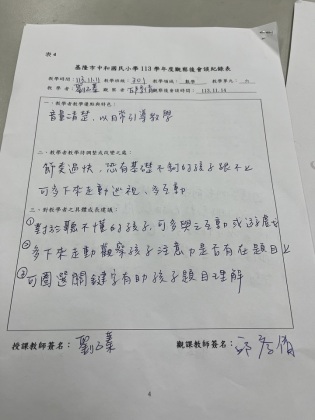 表4
基隆市中和國民小學 113 學年度觀察後會談紀錄表
教學時間：113.11.11 教學班級： 教學領域：數學 教學單元：
教學者： 觀察者： 觀察後會談時間：113.11.14
一、教學者教學優點與特色：
音量清楚、以日常引導教學
二、教學者教學待調整或改變之處：
節奏過快、恐有基礎不夠的孩子跟不上
可多下來走動巡視、多互動
三、對教學者之具體成長建議：
①對於聽不懂的孩子，可多與之互動或
②多下來走動觀察孩子注意力是否有在題目上
③可圈選關鍵字有助孩子題目理解
授課教師簽名：
觀課教師簽名：
4